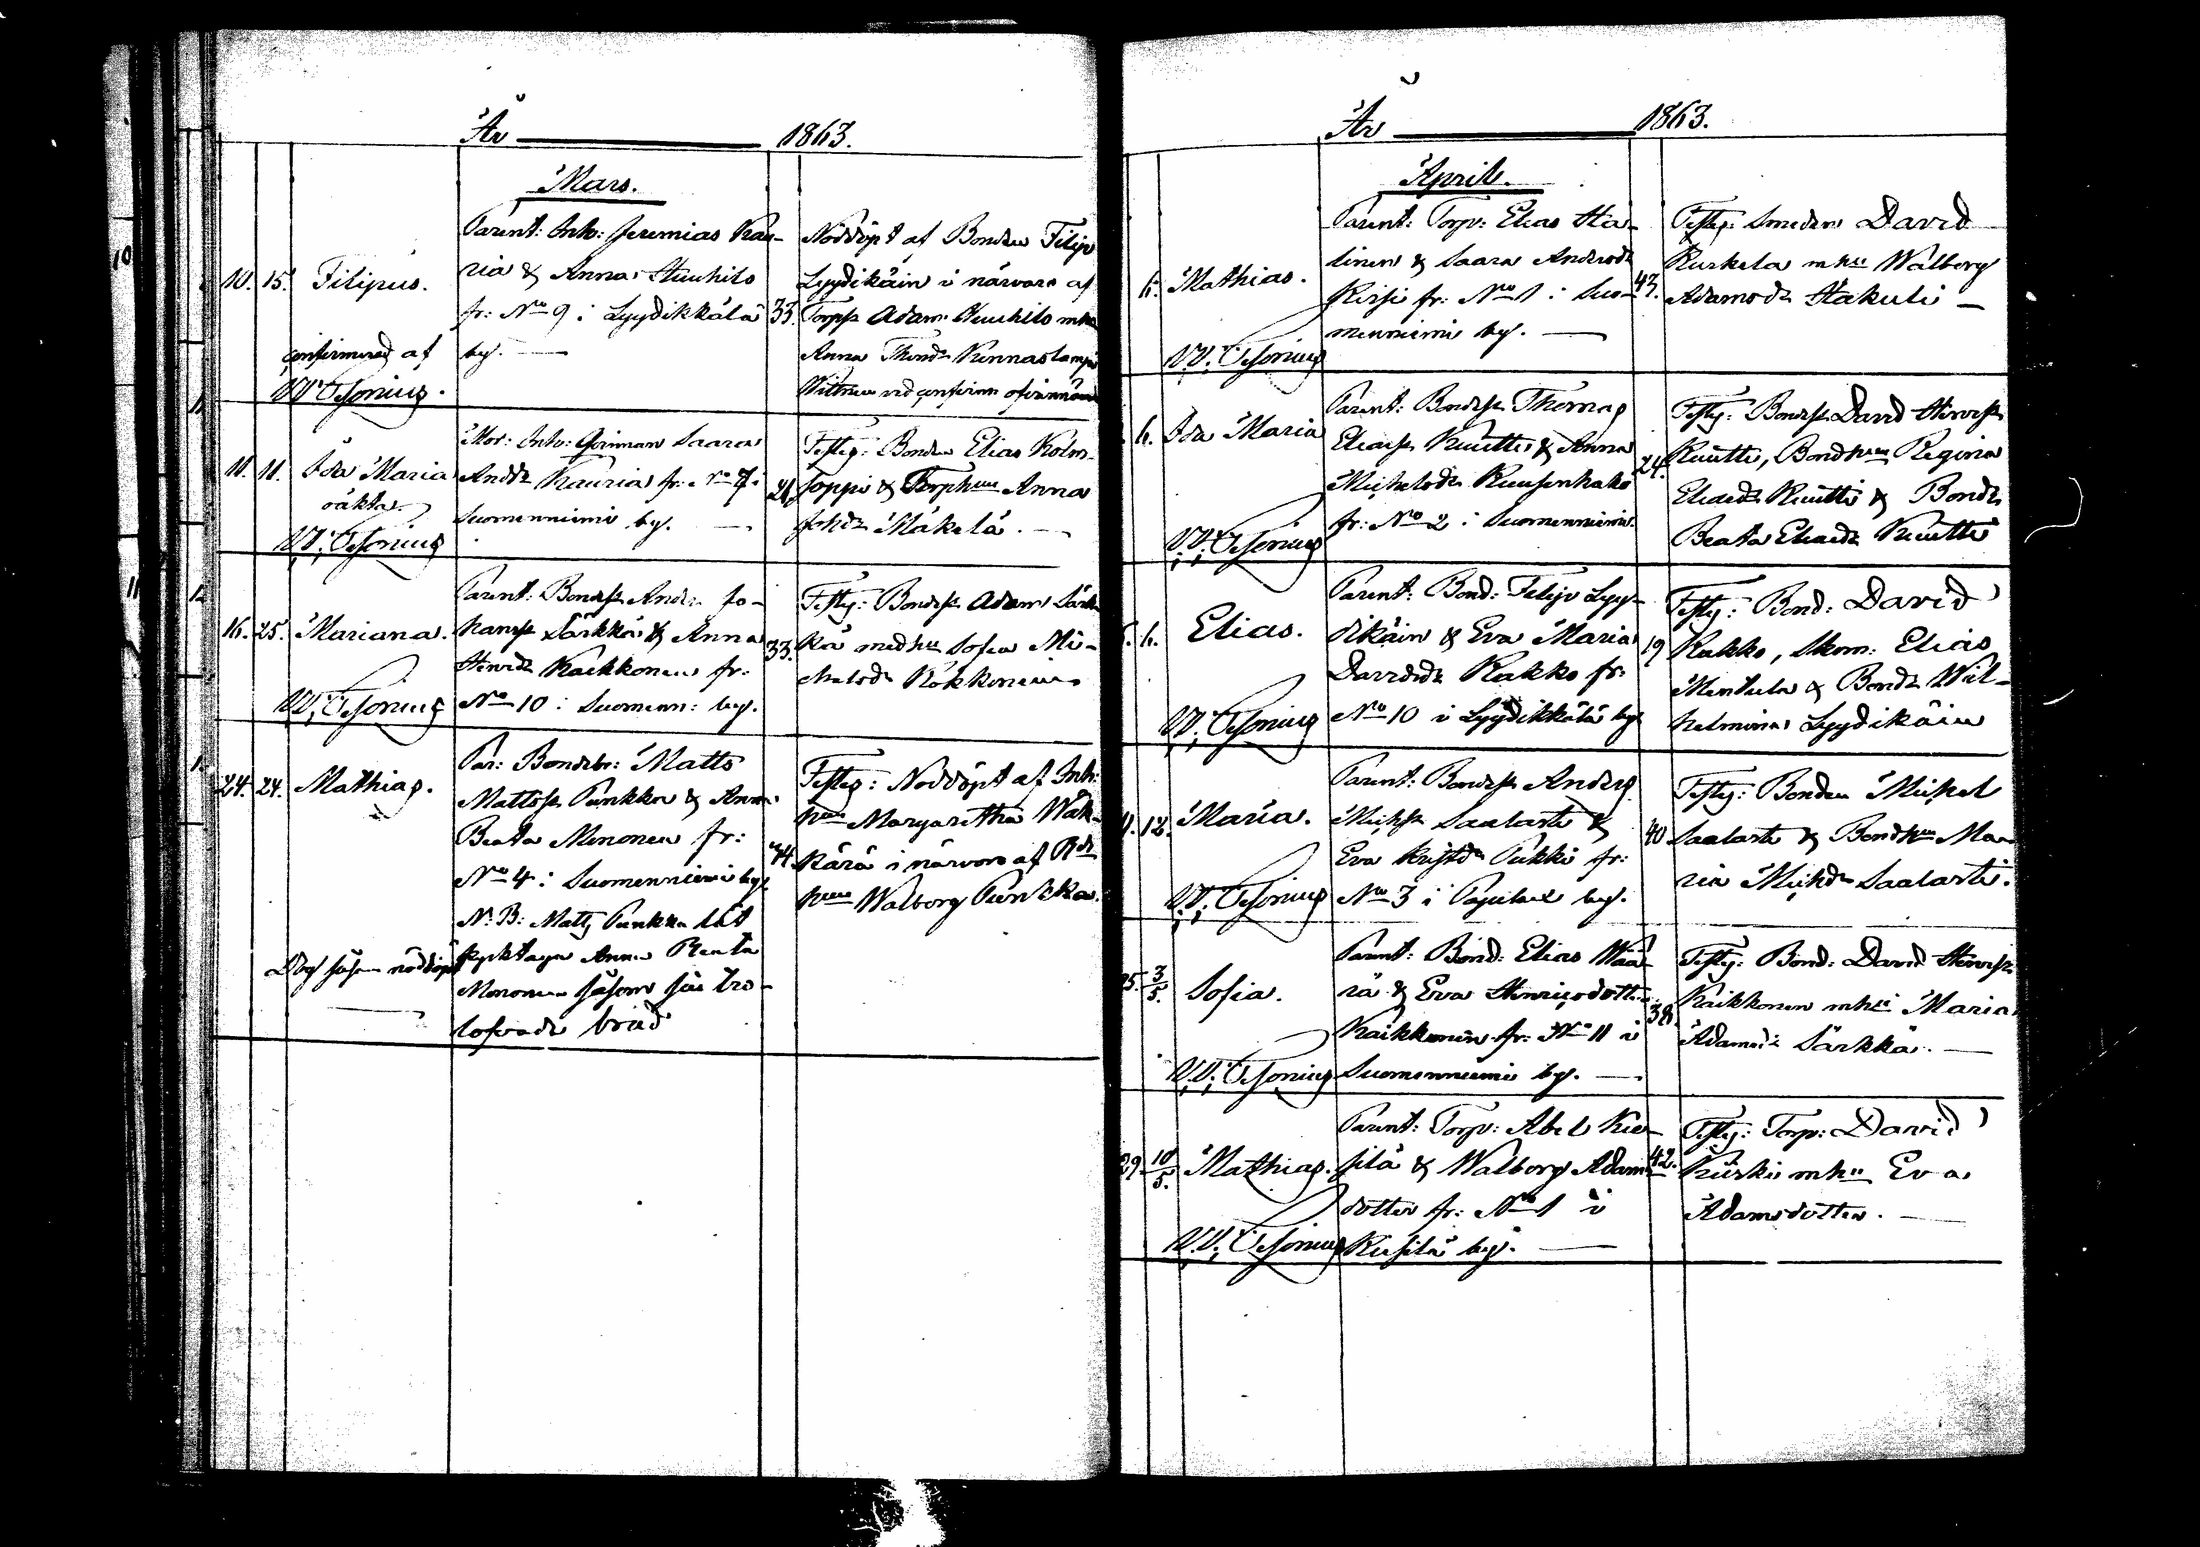 År 1863.
Mars.
10. 15. Filipus.
confirmered af
W. Tesonius.
Parent: Inh: Jeremias Kau-
ria & Anna Huuhilo
fr: No 9 i Lyydikkälä
by.
33.
Nöddöpt af Bonden Filip
Lyydikäin i närvaro af
Torpr Adam Huuhilo mhu
Anna Thomdr Kinnaslampi
Vittnen vid confirm ofvannämnd
10. 11. Ida Maria
oäkta
W. Tesonius
Mor: Inh: Qvinnan Saara
Anddr Kauria fr: No 7 i
Suomenniemi by.
21
Testes: Bonden Elias Kolm-
soppi & Torphun Anna
Johdr Mäkelä.
16. 25. Mariana.
W. Tesonius
Parent: Bondes. Anders Jo-
hanss. Särkkä & Anna
Henrdr Kaikkonen fr:
No 10 i Suomenn: by.
33.
Testes: Bondes. Adam Särk-
kä med hu Sofia Mi-
chelsdr Kokkonen
24. 24. Mathias.
Par: Bondebr: Matts
Mattss. Punkka & Anna
Beata Mononen fr:
No 4 i Suomenniemi by
N.B: Matts Punkka låt
kyrktaga Anna Beata
Mononen såsom sin tro-
lofvade brud
44
Testes: Nöddöpt af Inh:
hun Margaretha Wäk-
kärä i närvaro af Bdr
hun Walborg Punkka.
År 1863.
April.
6. Mathias.
W. Tesonius
Parent: Torp: Elias Ha-
linen & Saara Andersdr
Kirsi fr: No 1 i Suo-
menniemi by.
43.
Testes: Smeden David
Kurkela mhu Walborg
Adamsdr Hakuli
6. Ida Maria
W. Tesonius
Parent: Bondes. Thomas
Eliass. Kuutti & Anna
Michelsdr Kuusenhako
fr: No 2 i Suomenniemi
24.
Testes: Bondes. David Henrss.
Kuutti, Bondhun Regina
Eliasdr Kuutti & Bonddr
Beata Eliasdr Kuutti
6. Elias.
W. Tesonius
Parent: Bond: Filip Lyy-
dikäin & Eva Maria
Davidsdr Kakko fr:
No 10 i Lyydikkälä by
19
Testes: Bond: David
Kakko, Skom: Elias
Mentula & Bonddr Wil-
helmina Lyydikäin
11. 12. Maria.
W. Tesonius
Parent: Bondes. Anders
Michss. Saalasti &
Eva Kristdr Pukki fr:
No 3 i by.
40
Testes: Bonden Michel
Saalasti & Bondhun Ma-
ria Michdr Saalasti.
25. 3/5. Sofia.
W. Tesonius
Parent: Bond: Elias Wää-
rä & Eva Henricsdotter
Kaikkonen fr: No 11 i
Suomenniemi by.
38.
Testes: Bond: David Henrss.
Kaikkonen mhu Maria
Adamsdr Särkkä.
29 10/5. Mathias.
W. Tesonius
Parent: Torp: Abel Kie-
silä & Walborg Adams-
dotter fr: No 1 i
Kiesilä by.
42.
Testes: Torp: David
Kurki mhu Eva
Adamsdotter.